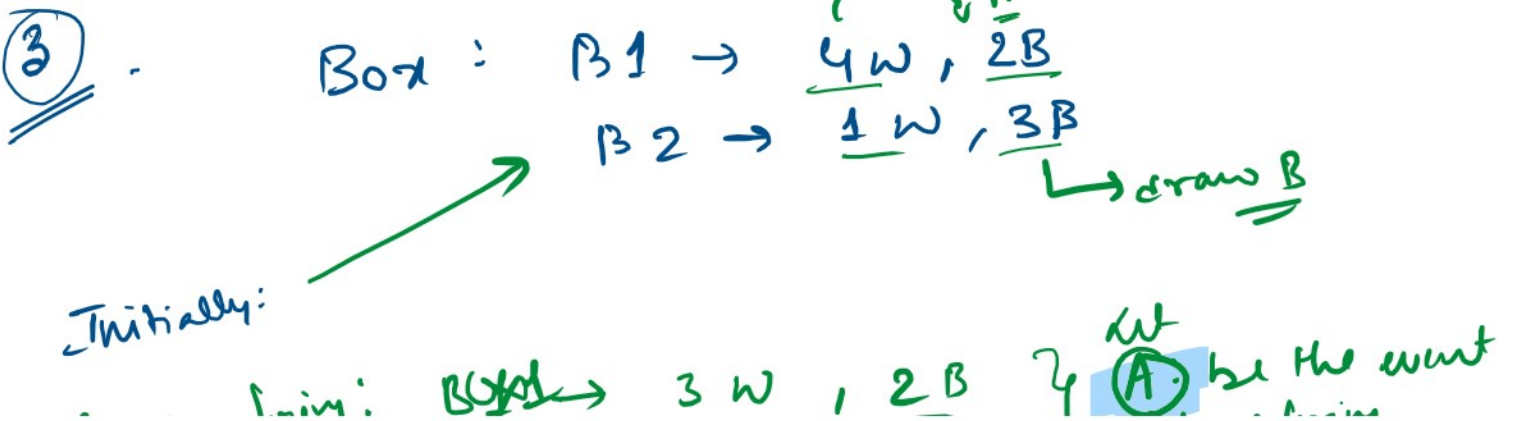 3. Box : B1 → 4W, 2B
B2 → 1W, 3B
→ draw B
Initially:
Let
→ 3W, 2B } A be the event